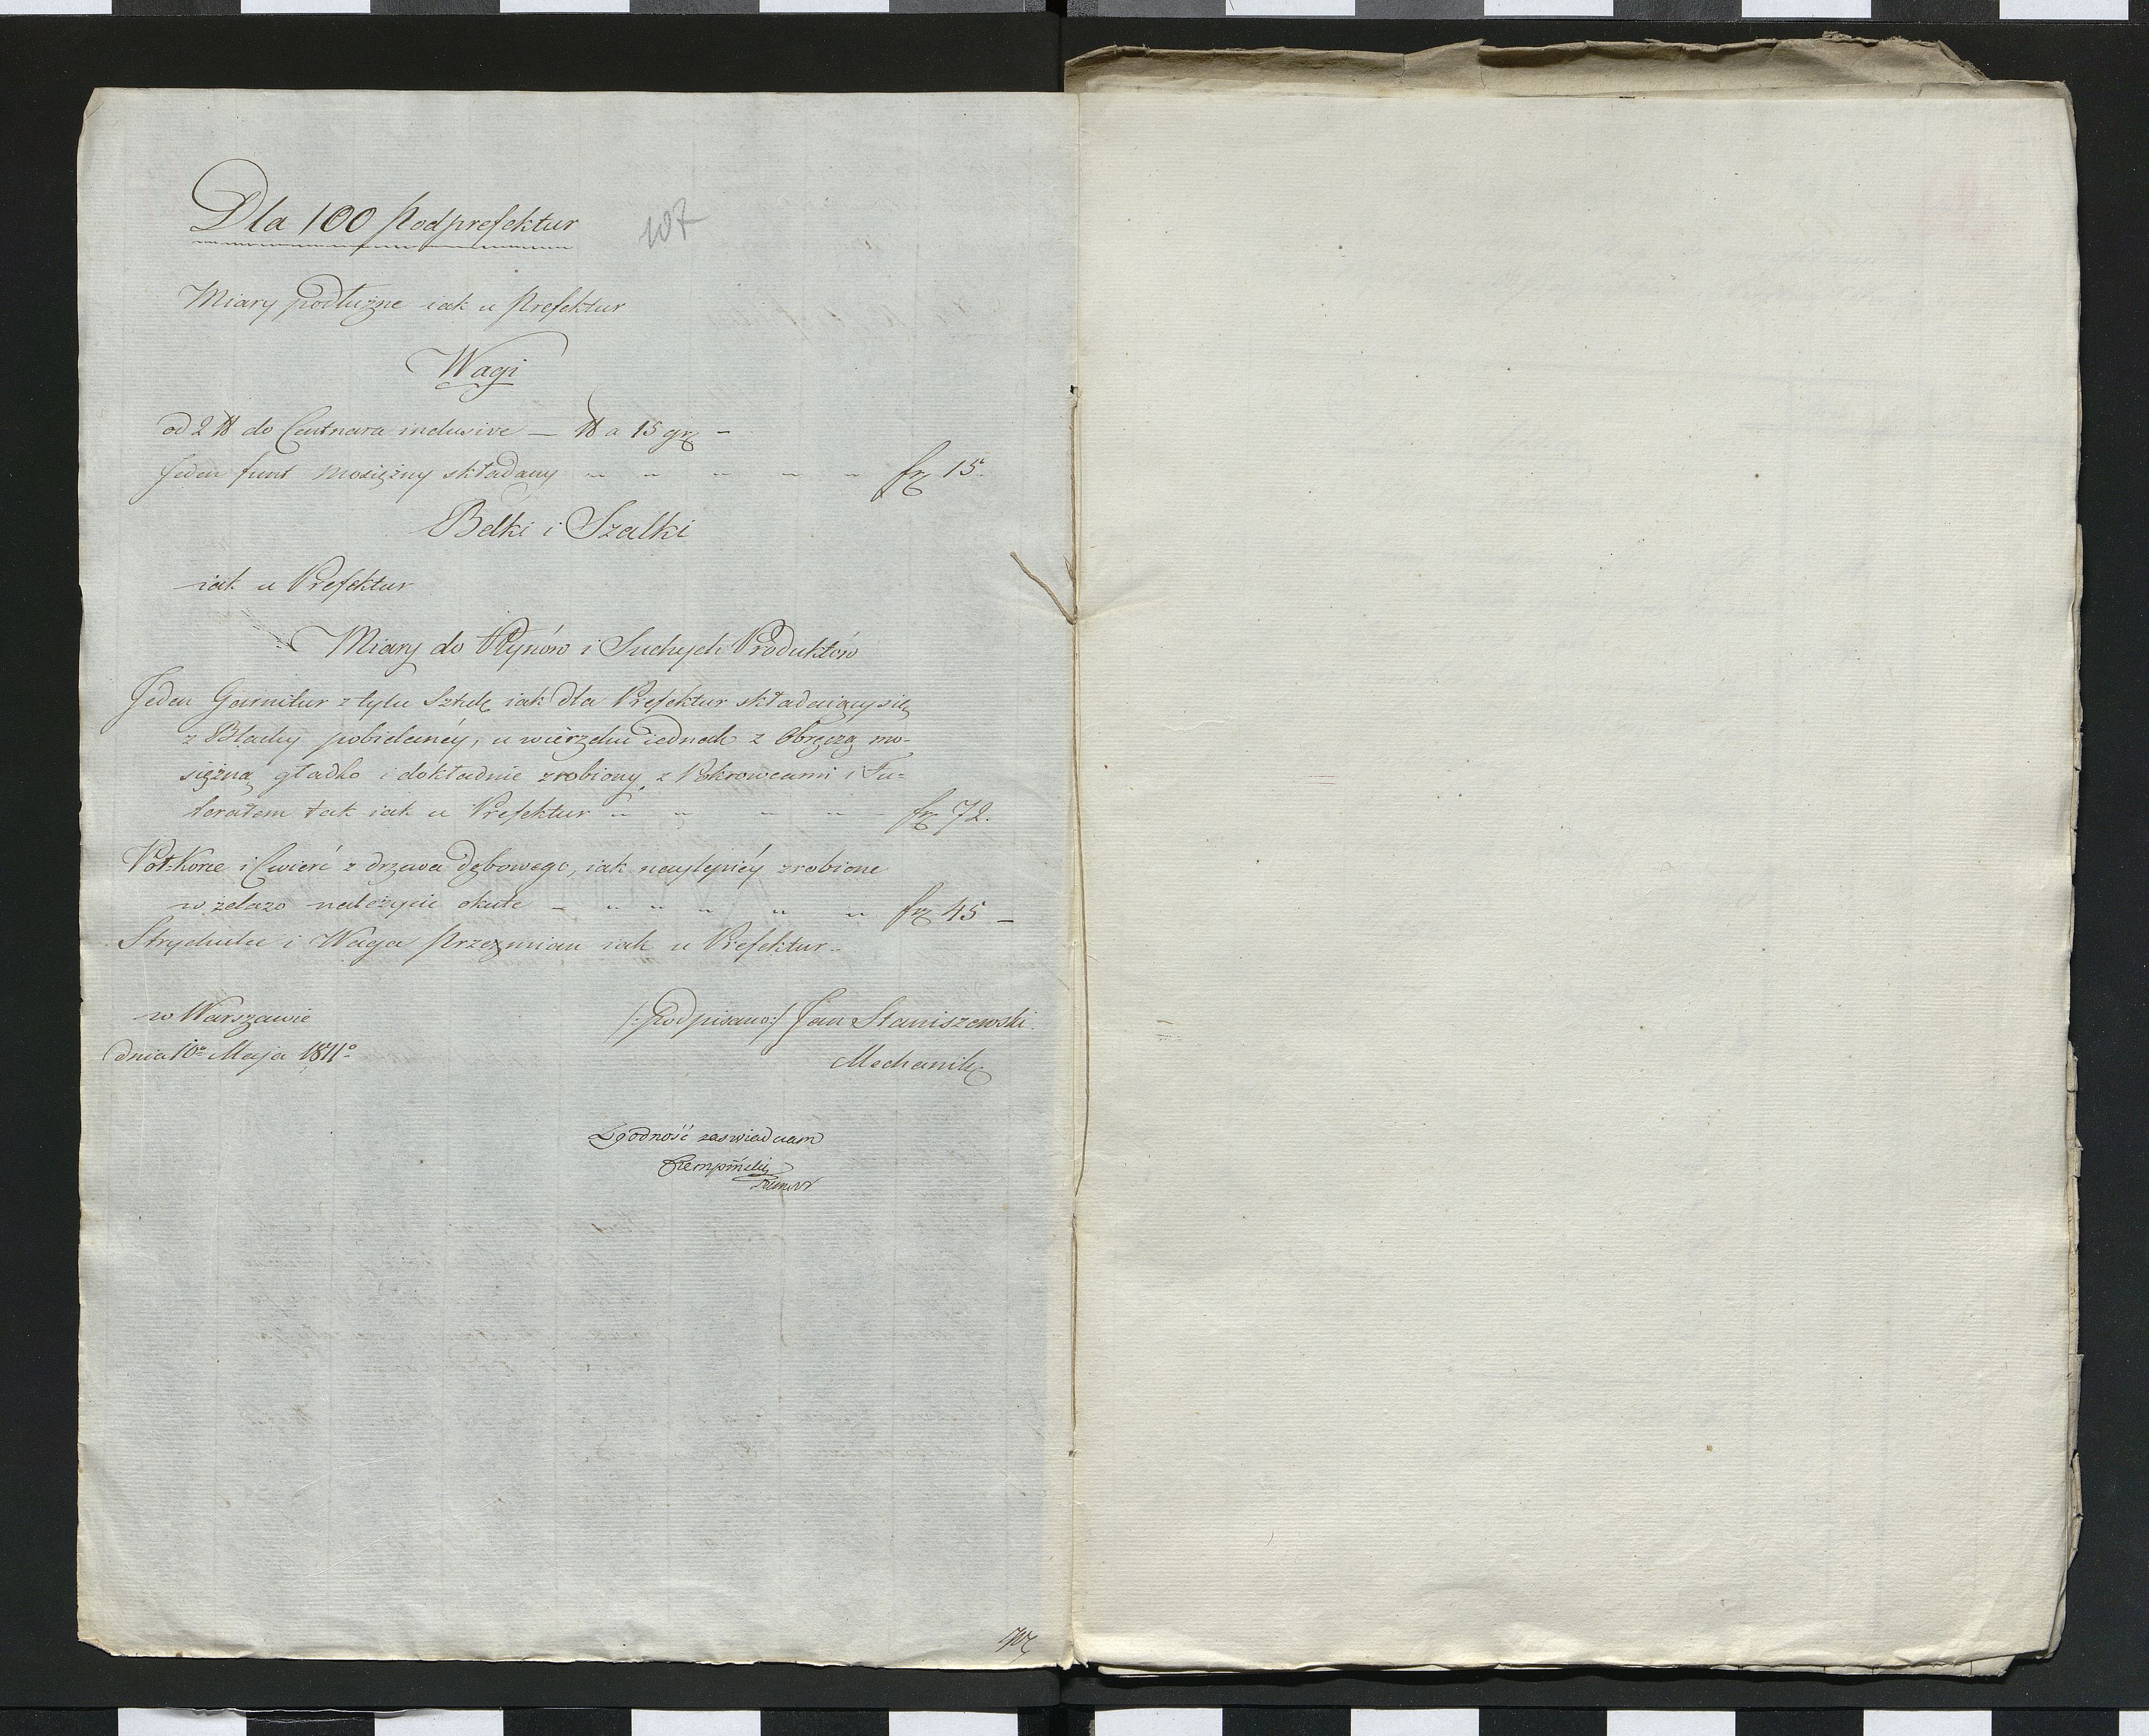 Dla 100 Podprefektur
107
Miary podłużne iak u Prefektur
Wagi
od 2 ℔ do Centnara inclusive — ℔ a 15 grz –
Jeden funt mosiężny składany „ „ „ „ „ frz 15.
Belki i Szalki
iak u Prefektur
Miary do Płynów i Suchych Produktów
Jeden Garnitur z tylu Sztuk iak dla Prefektur składaiący się
z Blachy pobielanéy, u wierzchu iednak z Obręczą mo-
siężną gładko i dokładnie zrobiony z Pokrowcami i Fu-
terałem tak iak u Prefektur „ „ „ „ – frz 72.
Pół-Korce i Cwierć z drzewa dębowego, iak naylepiéy zrobione
w żelazo należycie okute – „ „ „ „ „ frz 45 –
Strychulce i Waga Przezmian iak u Prefektur.
w Warszawie
dnia 10º Maja 1811º
/:podpisano:/ Jan Staniszewski
Mechanik
Zgodność zaswiadczam
107